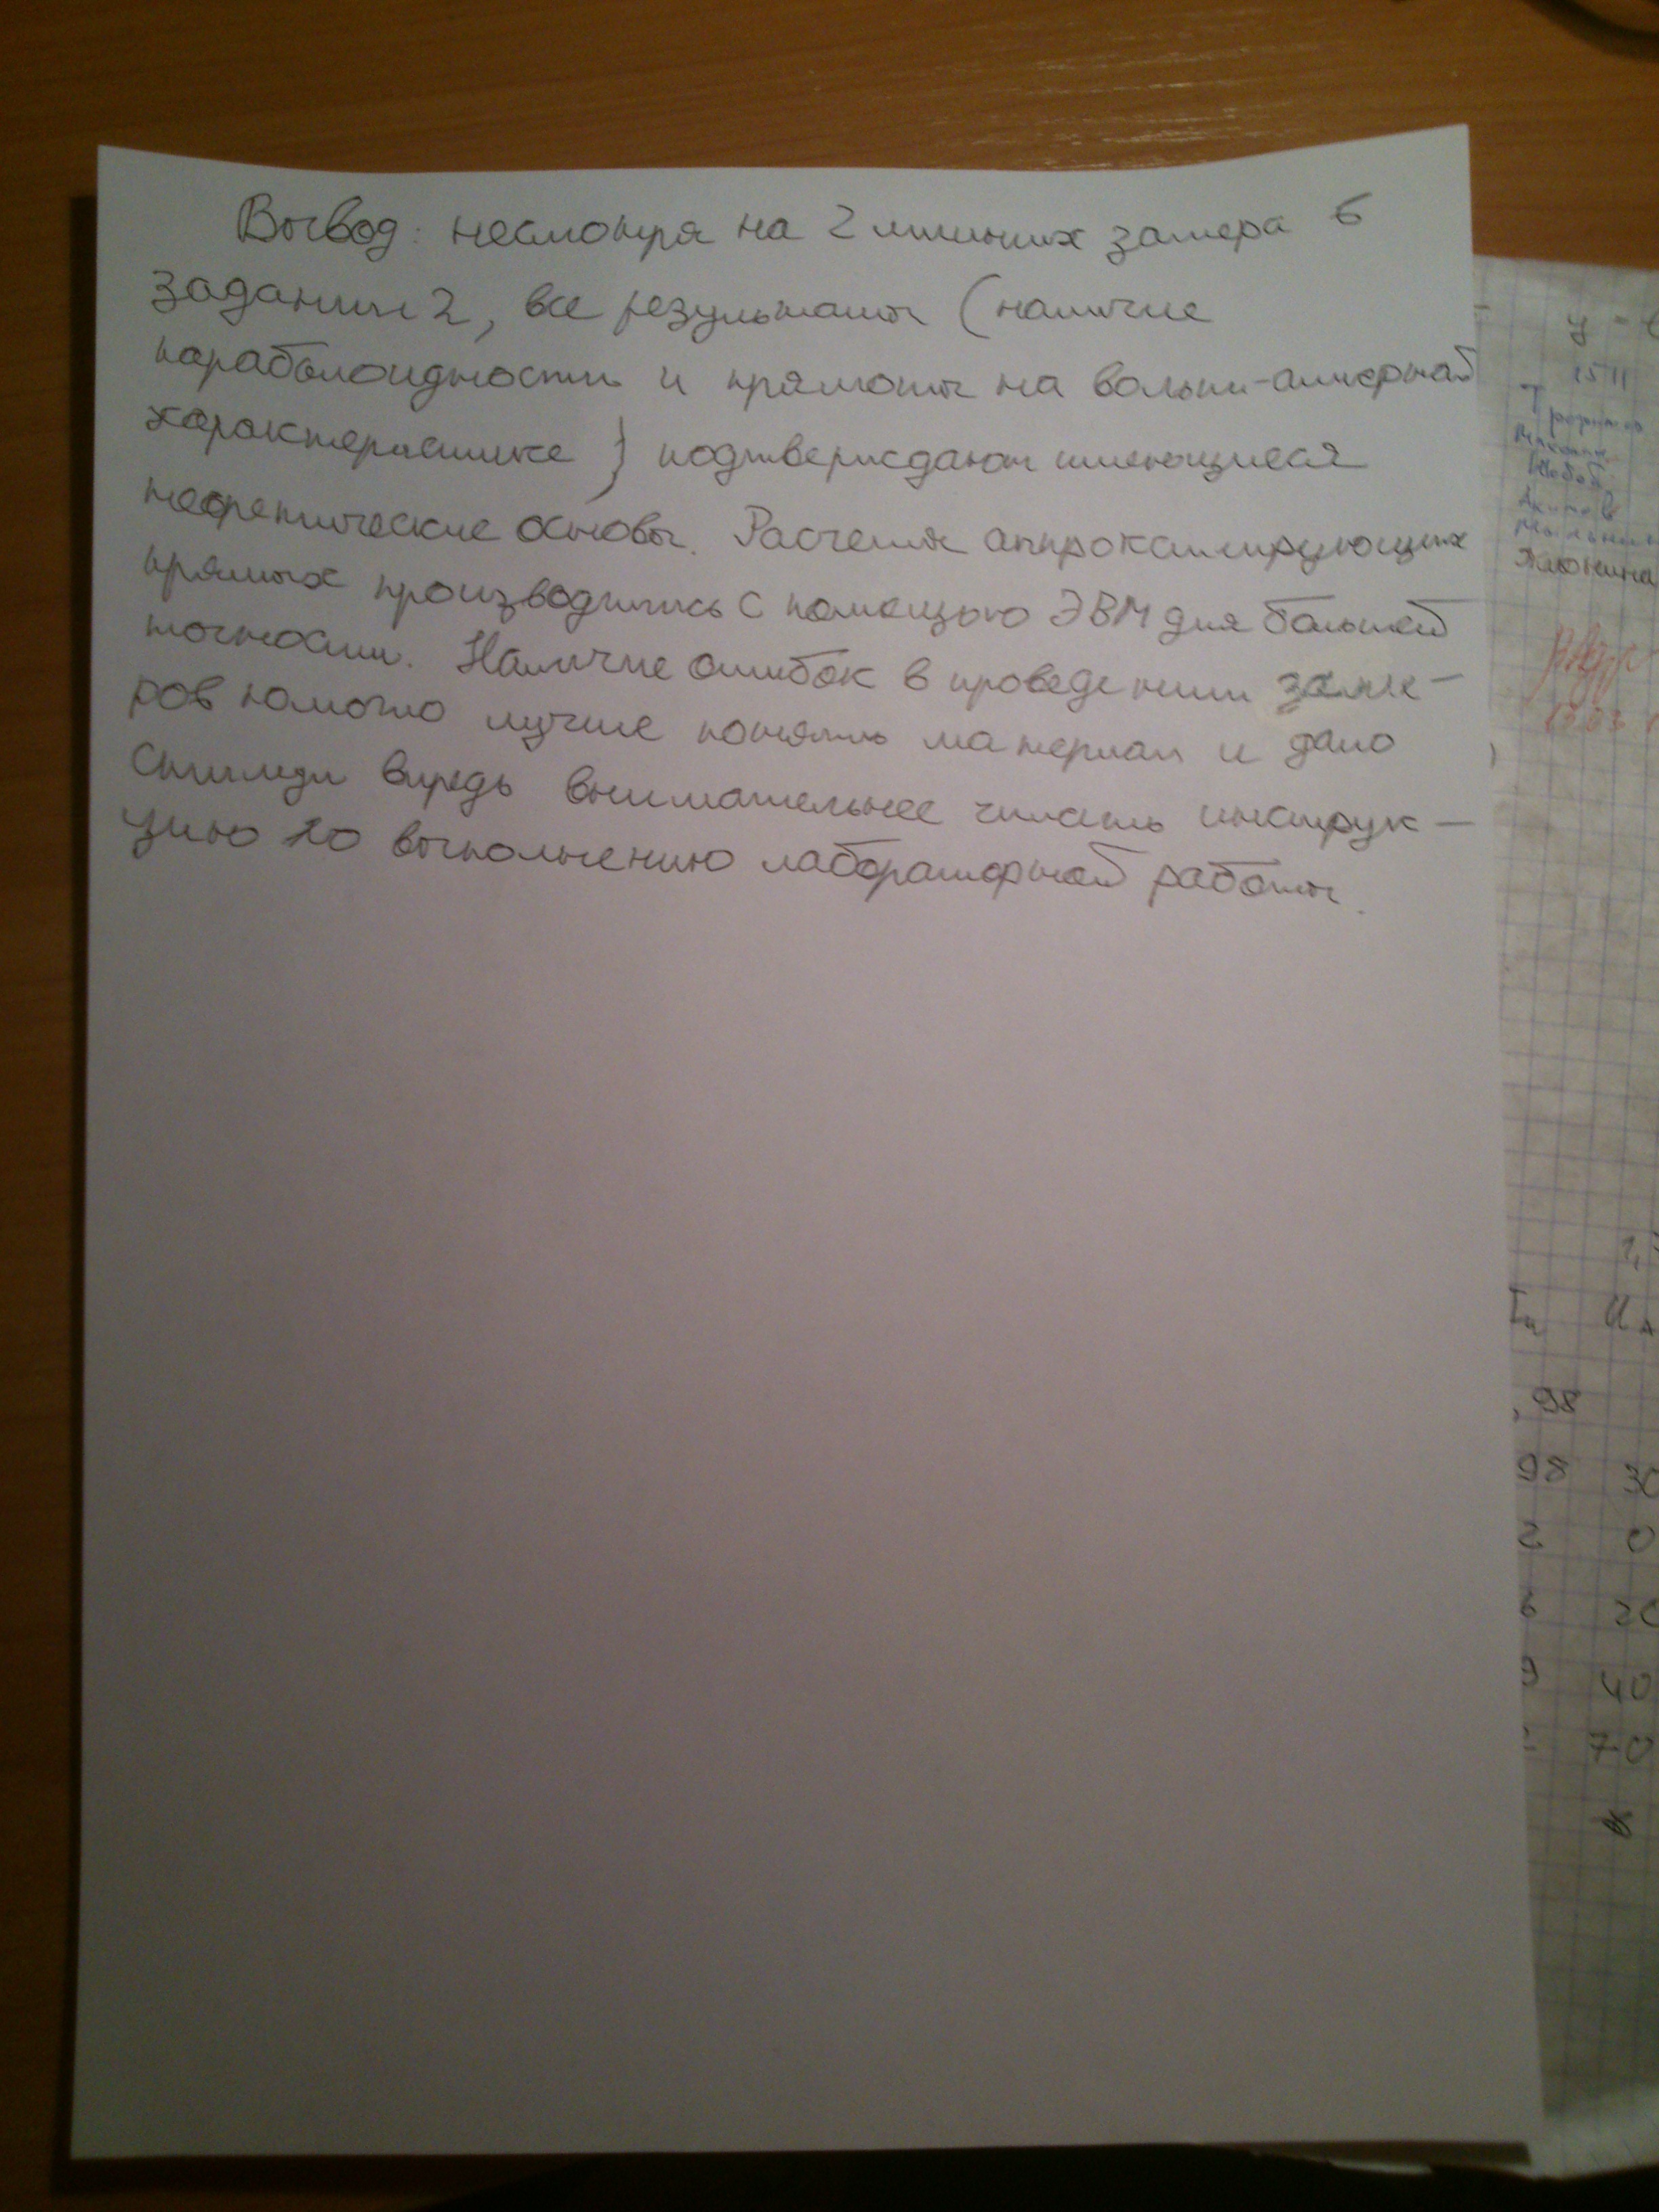 Вывод: несмотря на 2 лишних замера в
задании 2, все результаты (наличие
параболоидности и прямоты на вольт-амперной
характеристике) подтверждают имеющиеся
теоретические основы. Расчеты аппроксимирующих
прямых производились с помощью ЭВМ для большей
точности. Наличие ошибок в проведении заме-
ров помогло лучше понять материал и дало
стимул впредь внимательнее читать инструк-
цию по выполнению лабораторной работы.
y =
1511
Акимов
13.03
Iа Uа
,98
98 30
2 0
6 20
9 40
2 70